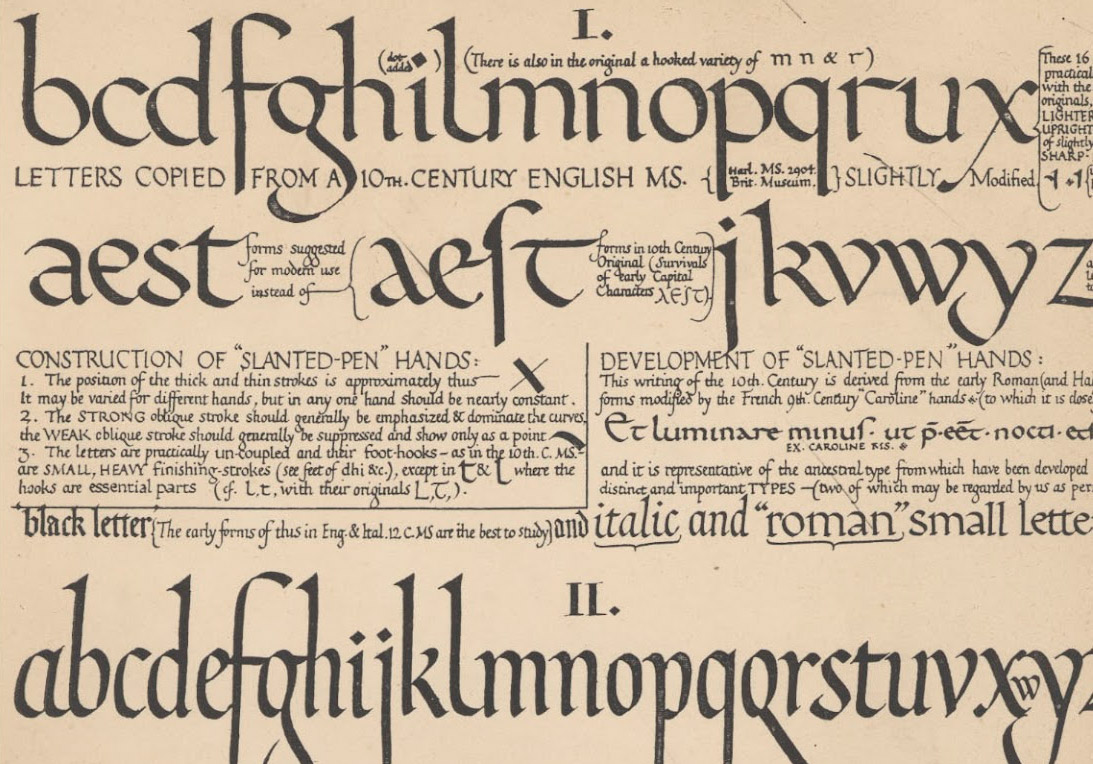 I.
(dot added) (There is also in the original a hooked variety of m n & r)
bcdfghilmnopqrux
These 16
practical
with the
originals,
LIGHTER
UPRIGHT
of slightly
SHARP-
LETTERS COPIED FROM A 10TH. CENTURY ENGLISH MS. {Harl. MS. 2904. Brit. Museum.} SLIGHTLY Modified
aest forms suggested for modern use instead of (aeſt forms in 10th Century Original (Survivals of early Capital Characters) jkvwyz
CONSTRUCTION OF "SLANTED-PEN" HANDS:
1. The position of the thick and thin strokes is approximately thus
It may be varied for different hands, but in any one hand should be nearly constant.
2. The STRONG oblique stroke should generally be emphasized & dominate the curves,
the WEAK oblique stroke should generally be suppressed and show only as a point
3. The letters are practically un-coupled and their foot-hooks – as in the 10th. C. MS.–
are SMALL, HEAVY finishing-strokes (see feet of dhi &c.), except in t & l where the
hooks are essential parts (cf. L, t, with their originals L, T,).
DEVELOPMENT OF "SLANTED-PEN" HANDS:
This writing of the 10th. Century is derived from the early Roman (and
forms modified by the French 9th. Century "Caroline" hands (to which it is
Et luminare minuſ. ut p̄·eēt·nocti·
EX. CAROLINE MS.
and it is representative of the ancestral type from which have been developed
distinct and important TYPES – (two of which may be regarded by us as
"black letter" {The early forms of this in Eng. & Ital. 12 C. MS are the best to study} and italic and "roman" small
II.
abcdefghijklmnopqqrstuvxwyz